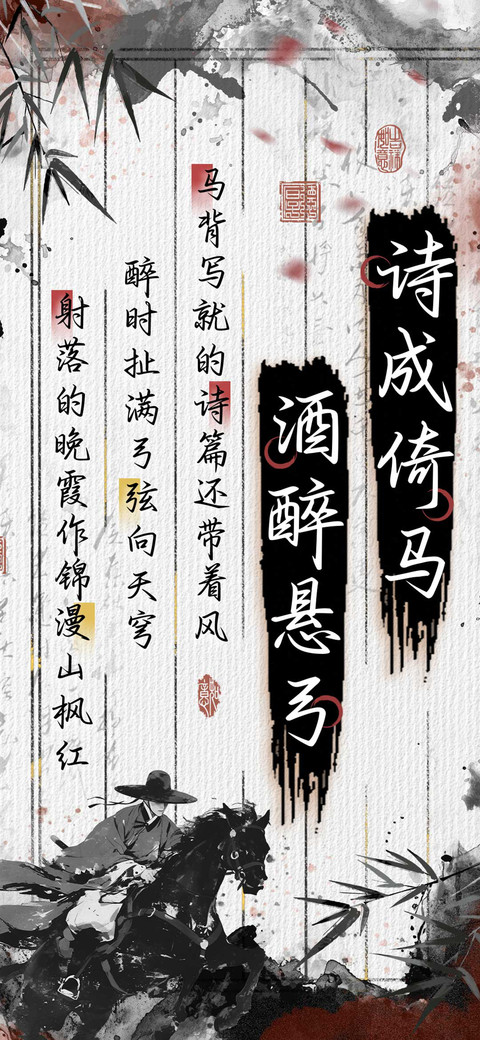 诗成倚马
酒醉悬弓
马背写就的诗篇还带着风
醉时扯满弓弦向天穹
射落的晚霞作锦漫山枫红